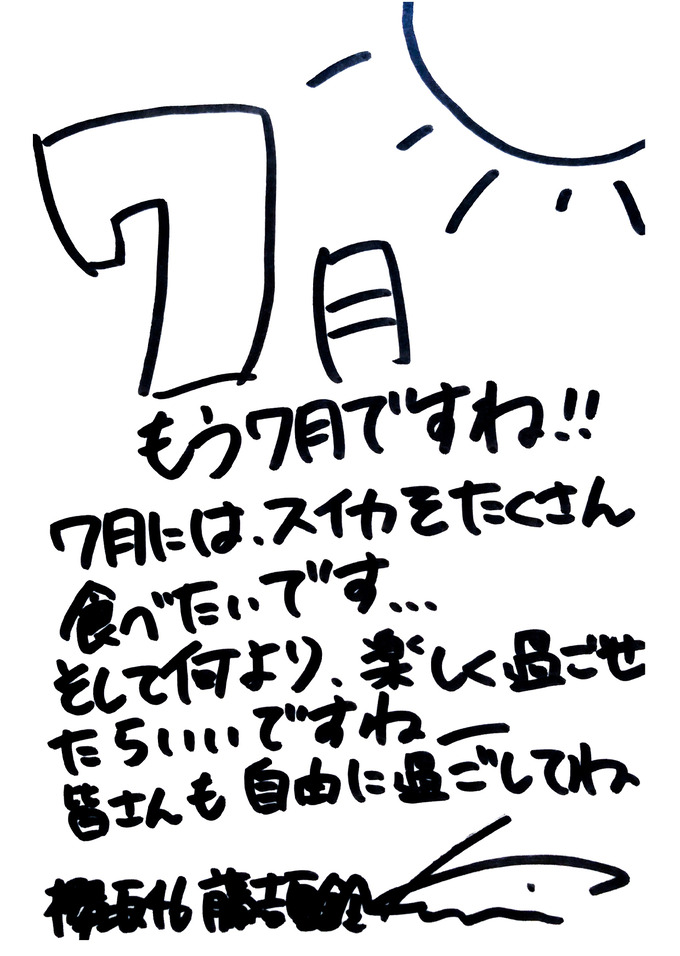 7月
もう7月ですね!!
7月には、スイカをたくさん
食べたいです...
そして何より、楽しく過ごせ
たらいいですねー
皆さんも自由に過ごしてね
櫻坂46 藤吉夏鈴